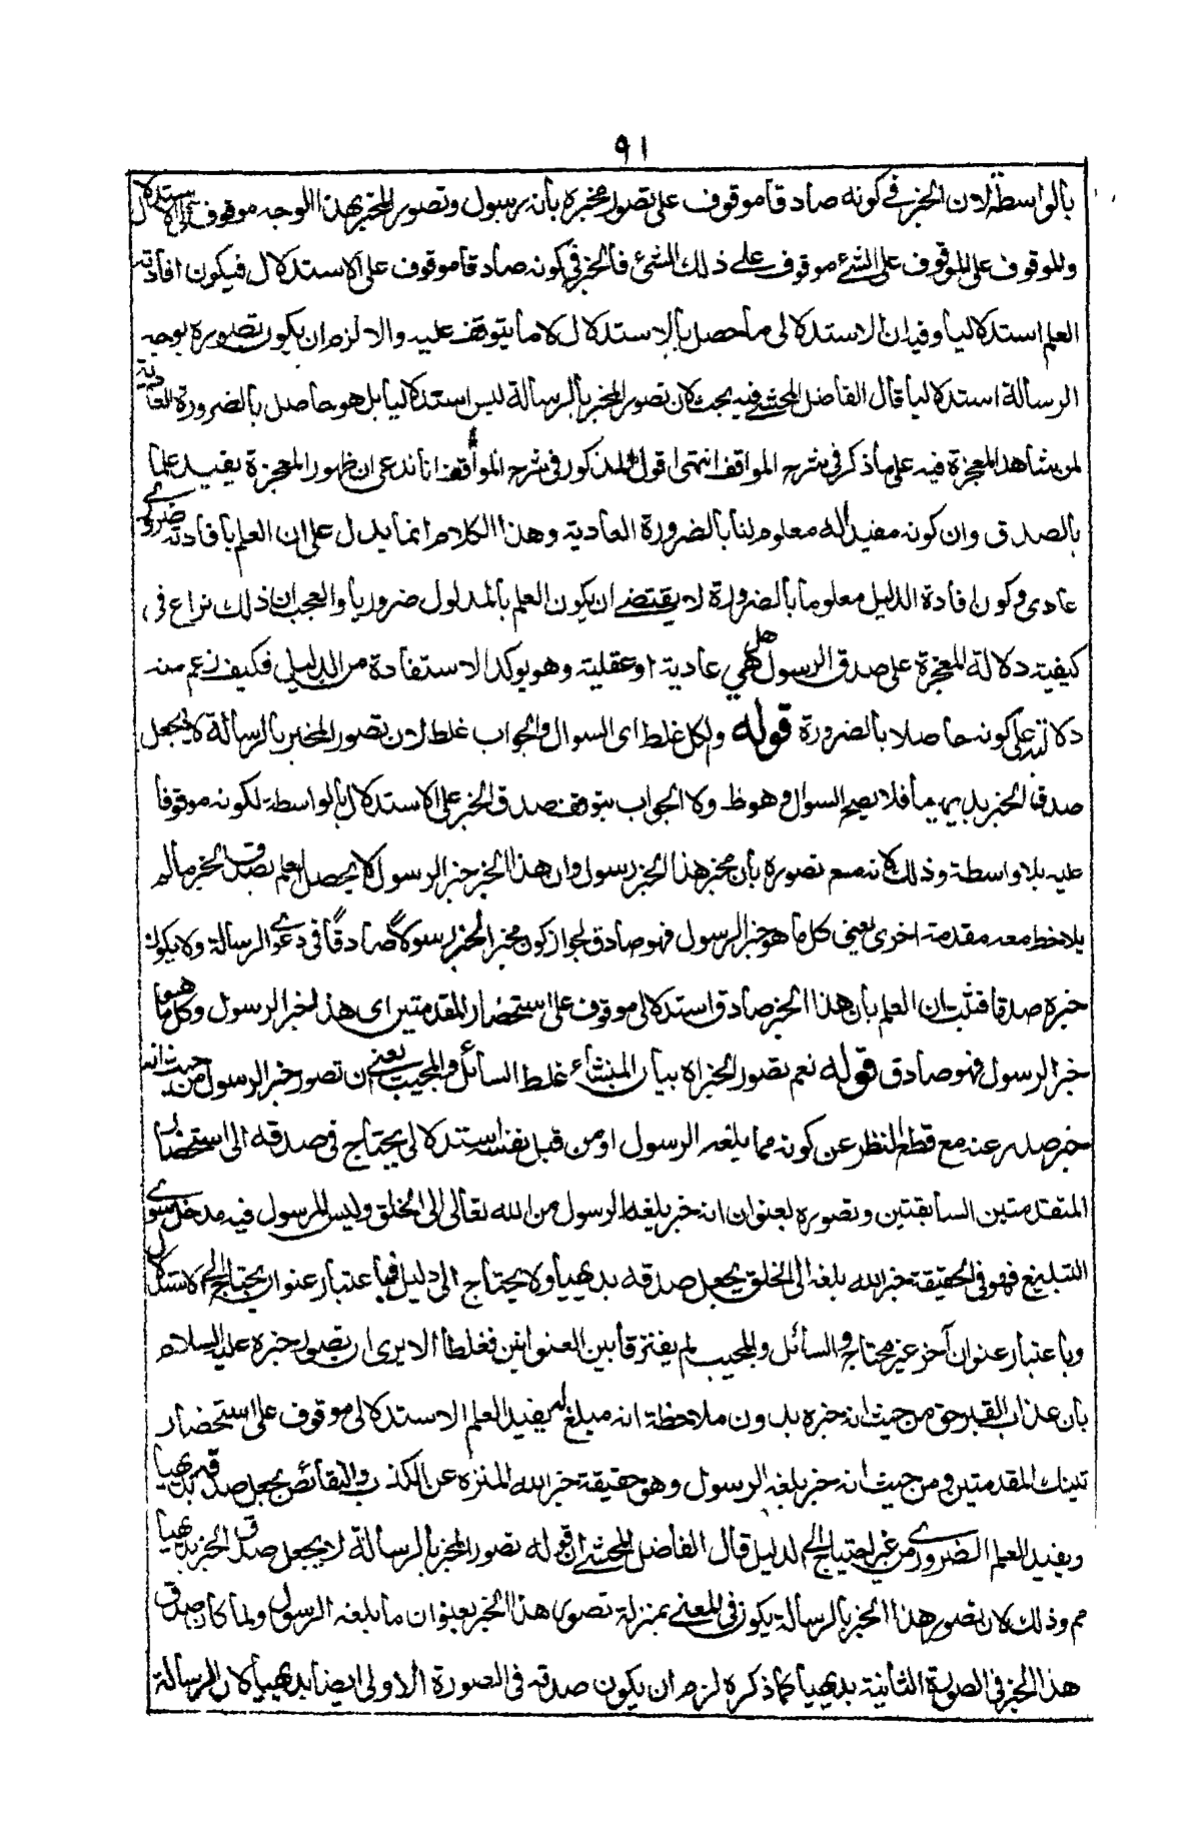 ٩١
بالواسطة لان الخبر فى كونه صادقا موقوف على تصور مخبره بانه رسول وتصور المخبر بهذا الوجه موقوف على الاستدلال
والموقوف على الموقوف على الشئ موقوف على ذلك الشئ فالخبر فى كونه صادقا موقوف على الاستدلال فيكون افادته
العلم استدلاليا وفيه ان الاستدلالى ما حصل بالاستدلال لا ما يتوقف عليه والا لزم ان يكون تصوره بوجه
الرسالة استدلاليا قال الفاضل المحشى فيه بحث لان تصور المخبر بالرسالة ليس استدلاليا بل هو حاصل بالضرورة العادية
لمن شاهد المعجزة فيه على ما ذكر فى شرح المواقف انتهى اقول المذكور فى شرح المواقف انا ندعى ان ظهور المعجزة يفيد علما
بالصدق وان كونه مفيدا له معلوم لنا بالضرورة العادية وهذا الكلام انما يدل على ان العلم بافادته ضرورى
عادى وكون افادة الدليل معلوما بالضرورة لا يقتضى ان يكون العلم بالمدلول ضروريا والعجب ان ذلك نزاع فى
كيفية دلالة المعجزة على صدق الرسول هل هى عادية او عقلية وهو يوكد الاستفادة من الدليل فكيف زعم منه
دلالته على كونه حاصلا بالضرورة قوله والكل غلط اى السوال والجواب غلط لان تصور المخبر بالرسالة لا يجعل
صدق الخبر بديهيا فلا يصح السوال وهو ظ ولا الجواب بتوقف صدق الخبر على الاستدلال بالواسطة لكونه موقوفا
عليه بلا واسطة وذلك لانه مع تصوره بان مخبر هذا الخبر رسول وان هذا الخبر خبر الرسول لا يحصل العلم بصدق الخبر ما لم
يلاحظ معه مقدمة اخرى يعنى كل ما هو خبر الرسول فهو صادق لجواز كون مخبر الخبر رسولا صادقا فى دعوى الرسالة ولا يكون
خبره صدقا فثبت ان العلم بان هذا الخبر صادق استدلالى موقوف على استحضار المقدمتين اى هذا خبر الرسول وكل ما هو
خبر الرسول فهو صادق قوله نعم تصور الخبر اه بيان المنشاء غلط السائل والمجيب يعنى ان تصور خبر الرسول من حيث انه
خبر صدر عنه مع قطع النظر عن كونه مما بلغه الرسول او من قبل نفسه استدلالى يحتاج فى صدقه الى استحضار
المقدمتين السابقتين وتصوره بعنوان انه خبر بلغه الرسول من الله تعالى الى الخلق وليس للرسول فيه مدخل سوى
التبليغ فهو فى الحقيقة خبر الله بلغه الى الخلق يجعل صدقه بديهيا ولا يحتاج الى دليل فباعتبار عنوان يحتاج الى الاستدلال
وباعتبار عنوان آخر غير محتاج والسائل والمجيب لم يفترقا بين العنوانين فغلطا الا يرى ان تصور خبره عليه السلام
بان عذاب القبر حق من حيث انه خبره بدون ملاحظة انه مبلغ له يفيد العلم الاستدلالى موقوف على استحضار
تينك المقدمتين ومن حيث انه خبر بلغه الرسول وهو حقيقة خبر الله المنزه عن الكذب والنقائص يجعل صدقه بديهيا
ويفيد العلم الضرورى من غير احتياج الى الدليل قال الفاضل المحشى ان قوله تصور المخبر بالرسالة لا يجعل صدق الخبر بديهيا
مم وذلك لان تصور هذا الخبر بالرسالة يكون فى المعنى بمنزلة تصور هذا الخبر بعنوان ما بلغه الرسول ولما كان صدق
هذا الخبر فى الصورة الثانية بديهيا كما ذكره لزم ان يكون صدقه فى الصورة الاولى ايضا بديهيا لان الرسالة